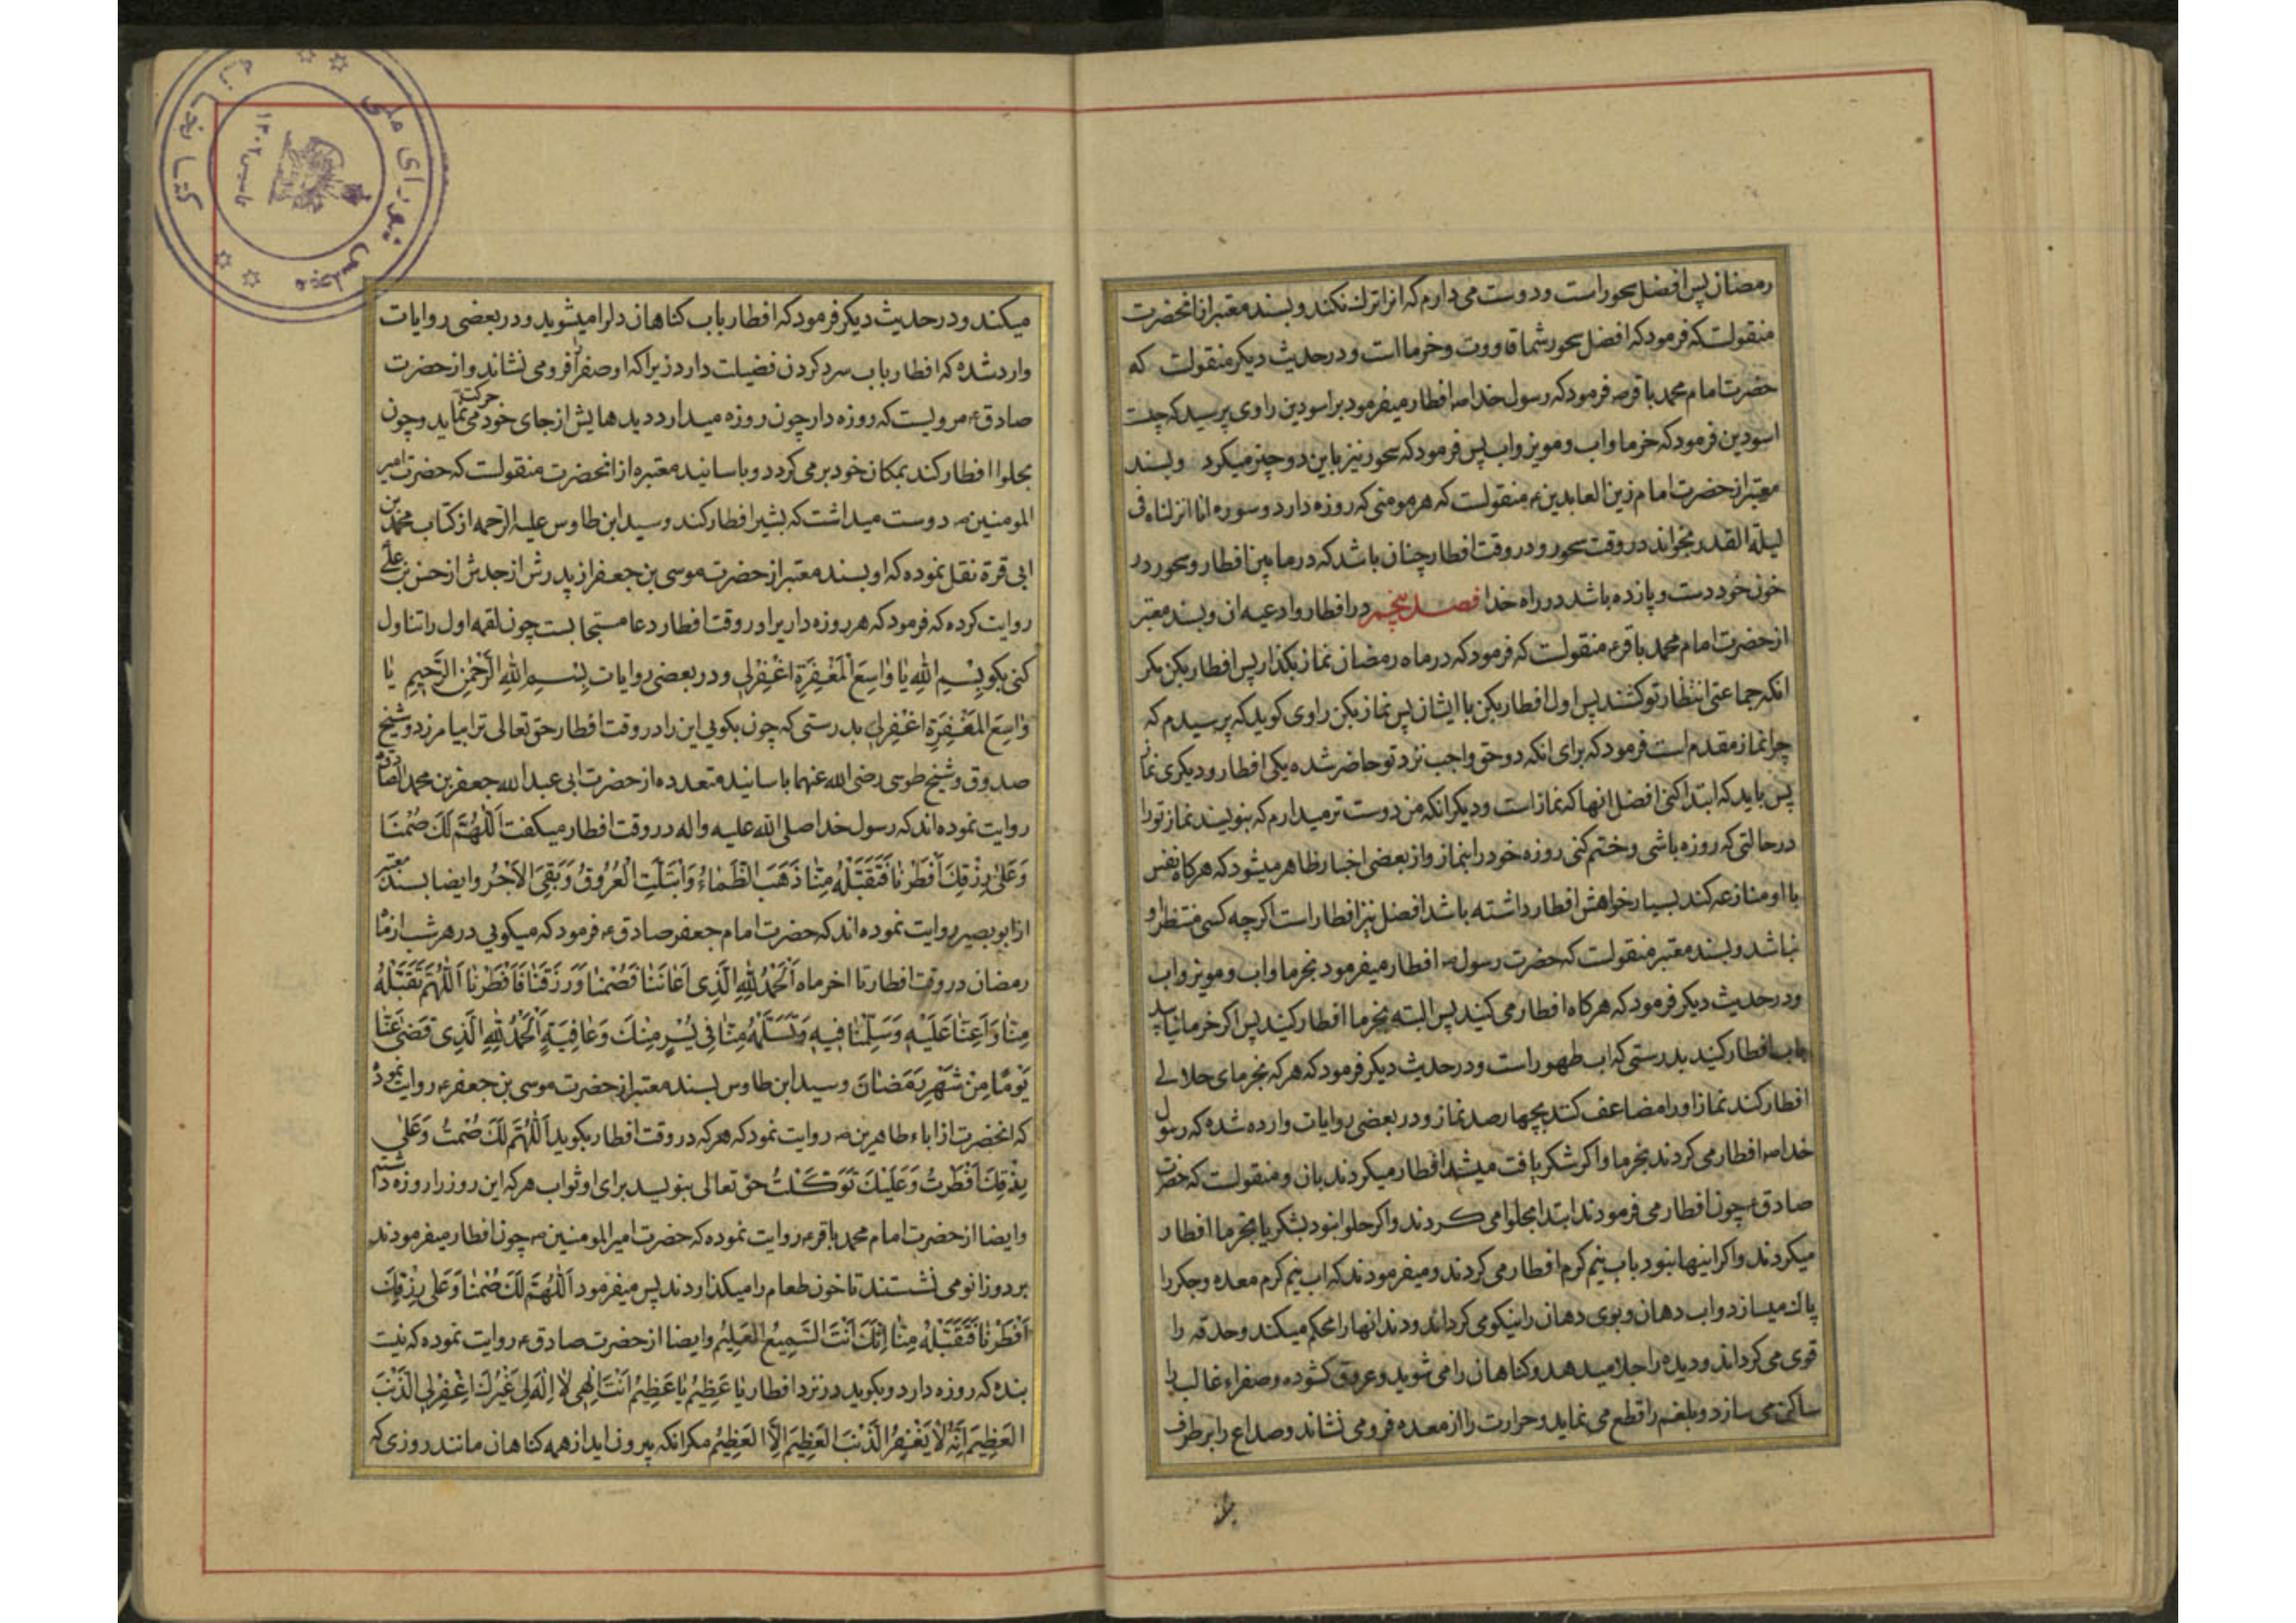 رمضان پس افضل سحور است و دوست می دارم که انرا ترک نکند و بسند معتبر از انحضرت
منقولست که فرمود که افضل سحور شما قاووت و خرما است و در حدیث دیکر منقولست که
حضرت امام محمد باقر ع فرمود که رسول خدا ص افطار میفرمود بر اسودین راوی پرسید که چیست
اسودین فرمود که خرما و اب و مویز و اب پس فرمود که سحور نیز باین دو چیز میکرد و بسند
معتبر از حضرت امام زین العابدین ع منقولست که هر مومنی که روزه دارد و سوره انا انزلناه فی
لیلة القدر بخواند در وقت سحور و در وقت افطار چنان باشد که در ما بین افطار و سحور در
خون خود دست و پا زده باشد در راه خدا فصل پنجم در افطار و ادعیه ان و بسند معتبر
از حضرت امام محمد باقر ع منقولست که فرمود که در ماه رمضان نماز بکذار پس افطار بکن مکر
انکه جماعتی انتظار تو کشند پس اول افطار بکن با ایشان پس نماز بکن راوی کوید که پرسیدم که
چرا نماز مقدم است فرمود که برای انکه دو حق واجب نزد تو حاضر شده یکی افطار و دیکری نماز
پس باید که ابتدا کنی افضل انها که نماز است و دیکر انکه من دوست تر میدارم که بنویسند نماز تو را
در حالتی که روزه باشی و ختم کنی روزه خود را بنماز و از بعضی اخبار ظاهر میشود که هر کاه نفس
با او منازعه کند بسیار خواهش افطار داشته باشد افضل نیز افطار است اکر چه کسی منتظر او
نباشد و بسند معتبر منقولست که حضرت رسول ص افطار میفرمود بخرما و اب و مویز و اب
و در حدیث دیکر فرمود که هر کاه افطار می کنید پس البته بخرما افطار کنید پس اکر خرما نیابید
باب افطار کنید بدرستی که اب طهور است و در حدیث دیکر فرمود که هر که بخرمای حلالی
افطار کند نماز او را مضاعف کنند بچهار صد نماز و در بعضی روایات وارده شده که رسول
خدا ص افطار می کردند بخرما و اکر شکر یافت میشد افطار میکردند بان و منقولست که حضرت
صادق ع چون افطار می فرمودند ابتدا بحلوا می کردند و اکر حلوا نبود بشکر یا بخرما افطار
میکردند و اکر اینها نبود باب نیم کرم افطار می کردند و میفرمودند که اب نیم کرم معده و جکر را
پاک میسازد و اب دهان و بوی دهان را نیکو می کرداند و دندانها را محکم میکند و حدقه را
قوی می کرداند و دیده را جلا میدهد و کناهان را می شوید و عروق کشوده و صفراء غالب را
ساکن می سازد و بلغم را قطع می نماید و حرارت را از معده فرو می نشاند و صداع را برطرف
میکند و در حدیث دیکر فرمود که افطار باب کناهان دل را میشوید و در بعضی روایات
وارد شده که افطار باب سرد کردن فضیلت دارد زیرا که او صفرا را فرو می نشاند و از حضرت
صادق ع مرویست که روزه دار چون روزه میدارد دیدهایش از جای خود حرکت می نماید و چون
بحلوا افطار کند بمکان خود بر می کردد و باسانید معتبره از انحضرت منقولست که حضرت امیر
المومنین ع دوست میداشت که بشیر افطار کند و سید ابن طاوس علیه الرحمه از کتاب محمد بن
ابی قرة نقل نموده که او بسند معتبر از حضرت موسی بن جعفر از پدرش از جدش از حسن بن علی
روایت کرده که فرمود که هر روزه داریرا در وقت افطار دعا مستجابست چون لقمه اول را تناول
کنی بکو بِسْمِ اللهِ یا واسِعَ الْمَغْفِرَةِ اغْفِرْلی و در بعضی روایات بِسْمِ اللهِ الرَّحْمنِ الرَّحیمِ یا
واسِعَ الْمَغْفِرَةِ اغْفِرْلی بدرستی که چون بکویی این را در وقت افطار حق تعالی ترا بیامرزد و شیخ
صدوق و شیخ طوسی رضی الله عنهما باسانید متعدده از حضرت ابی عبد الله جعفر بن محمد الصادق
روایت نموده اند که رسول خدا صلی الله علیه و اله در وقت افطار میکفت اَللّهُمَّ لَکَ صُمْنا
وَعَلی رِزْقِکَ اَفْطَرْنا فَتَقَبَّلْهُ مِنّا ذَهَبَ الظَّماءُ وَابْتَلَّتِ الْعُرُوقُ وَبَقِیَ الْاَجْرُ و ایضا بسند معتبر
از ابو بصیر روایت نموده اند که حضرت امام جعفر صادق ع فرمود که میکویی در هر شب از ماه
رمضان در وقت افطار تا اخر ماه اَلْحَمْدُ لِلّهِ الَّذی اَعانَنا فَصُمْنا وَرَزَقَنا فَاَفْطَرْنا اَللّهُمَّ تَقَبَّلْهُ
مِنّا وَاَعِنّا عَلَیْهِ وَسَلِّمْنا فیهِ وَتَسَلَّمْهُ مِنّا فی یُسْرٍ مِنْکَ وَعافِیَةٍ اَلْحَمْدُ لِلّهِ الَّذی قَضی عَنّا
یَوْمًا مِنْ شَهْرِ رَمَضانَ و سید ابن طاوس بسند معتبر از حضرت موسی بن جعفر ع روایت نموده
که انحضرت از اباء طاهرین ص روایت نمود که هر که در وقت افطار بکوید اَللّهُمَّ لَکَ صُمْتُ وَعَلی
رِزْقِکَ اَفْطَرْتُ وَعَلَیْکَ تَوَکَّلْتُ حق تعالی بنویسد برای او ثواب هر که این روز را روزه داشتیم
و ایضا از حضرت امام محمد باقر ع روایت نموده که حضرت امیر المومنین ص چون افطار میفرمودند
بر دو زانو می نشستند تا خون طعام را میکذاردند پس میفرمود اَللّهُمَّ لَکَ صُمْنا وَعَلی رِزْقِکَ
اَفْطَرْنا فَتَقَبَّلْهُ مِنّا اِنَّکَ اَنْتَ السَّمیعُ الْعَلیمُ و ایضا از حضرت صادق ع روایت نموده که نیست
بنده که روزه دارد و بکوید در نزد افطار یا عَظیمُ یا عَظیمُ اَنْتَ اِلهی لا اِلهَ لی غَیْرُکَ اغْفِرْ لِیَ الذَّنْبَ
الْعَظیمَ اِنَّهُ لا یَغْفِرُ الذَّنْبَ الْعَظیمَ اِلَّا الْعَظیمُ مکر انکه بیرون اید از همه کناهان مانند روزی که
کتابخانه
مجلس شورای ملی
تاسیس ۱۳۰۲